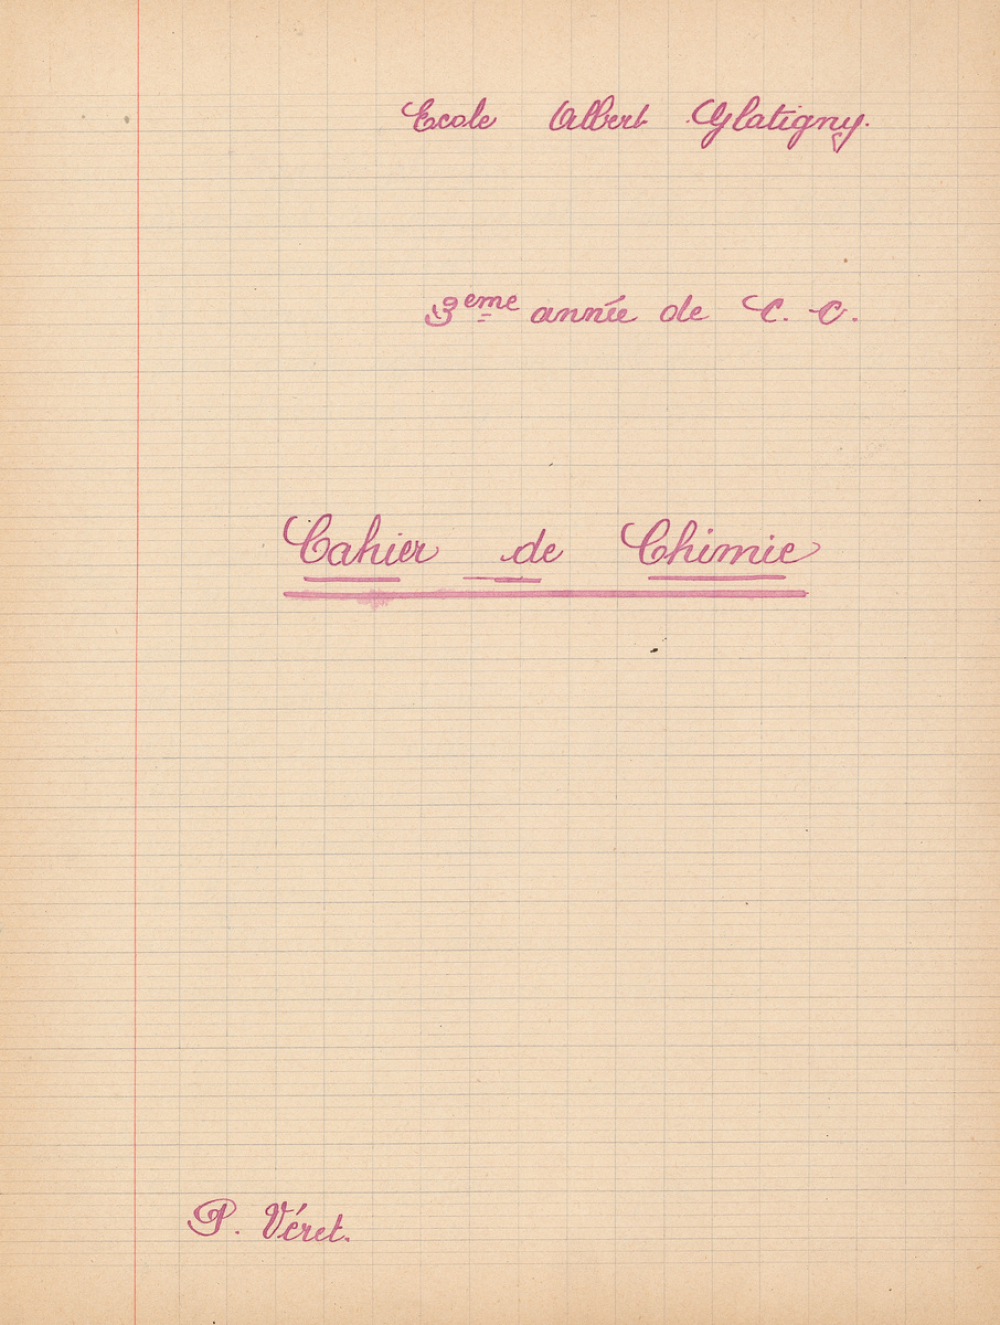 Ecole Albert Glatigny.
3eme année de C. C.
Cahier de Chimie
P. Véret.